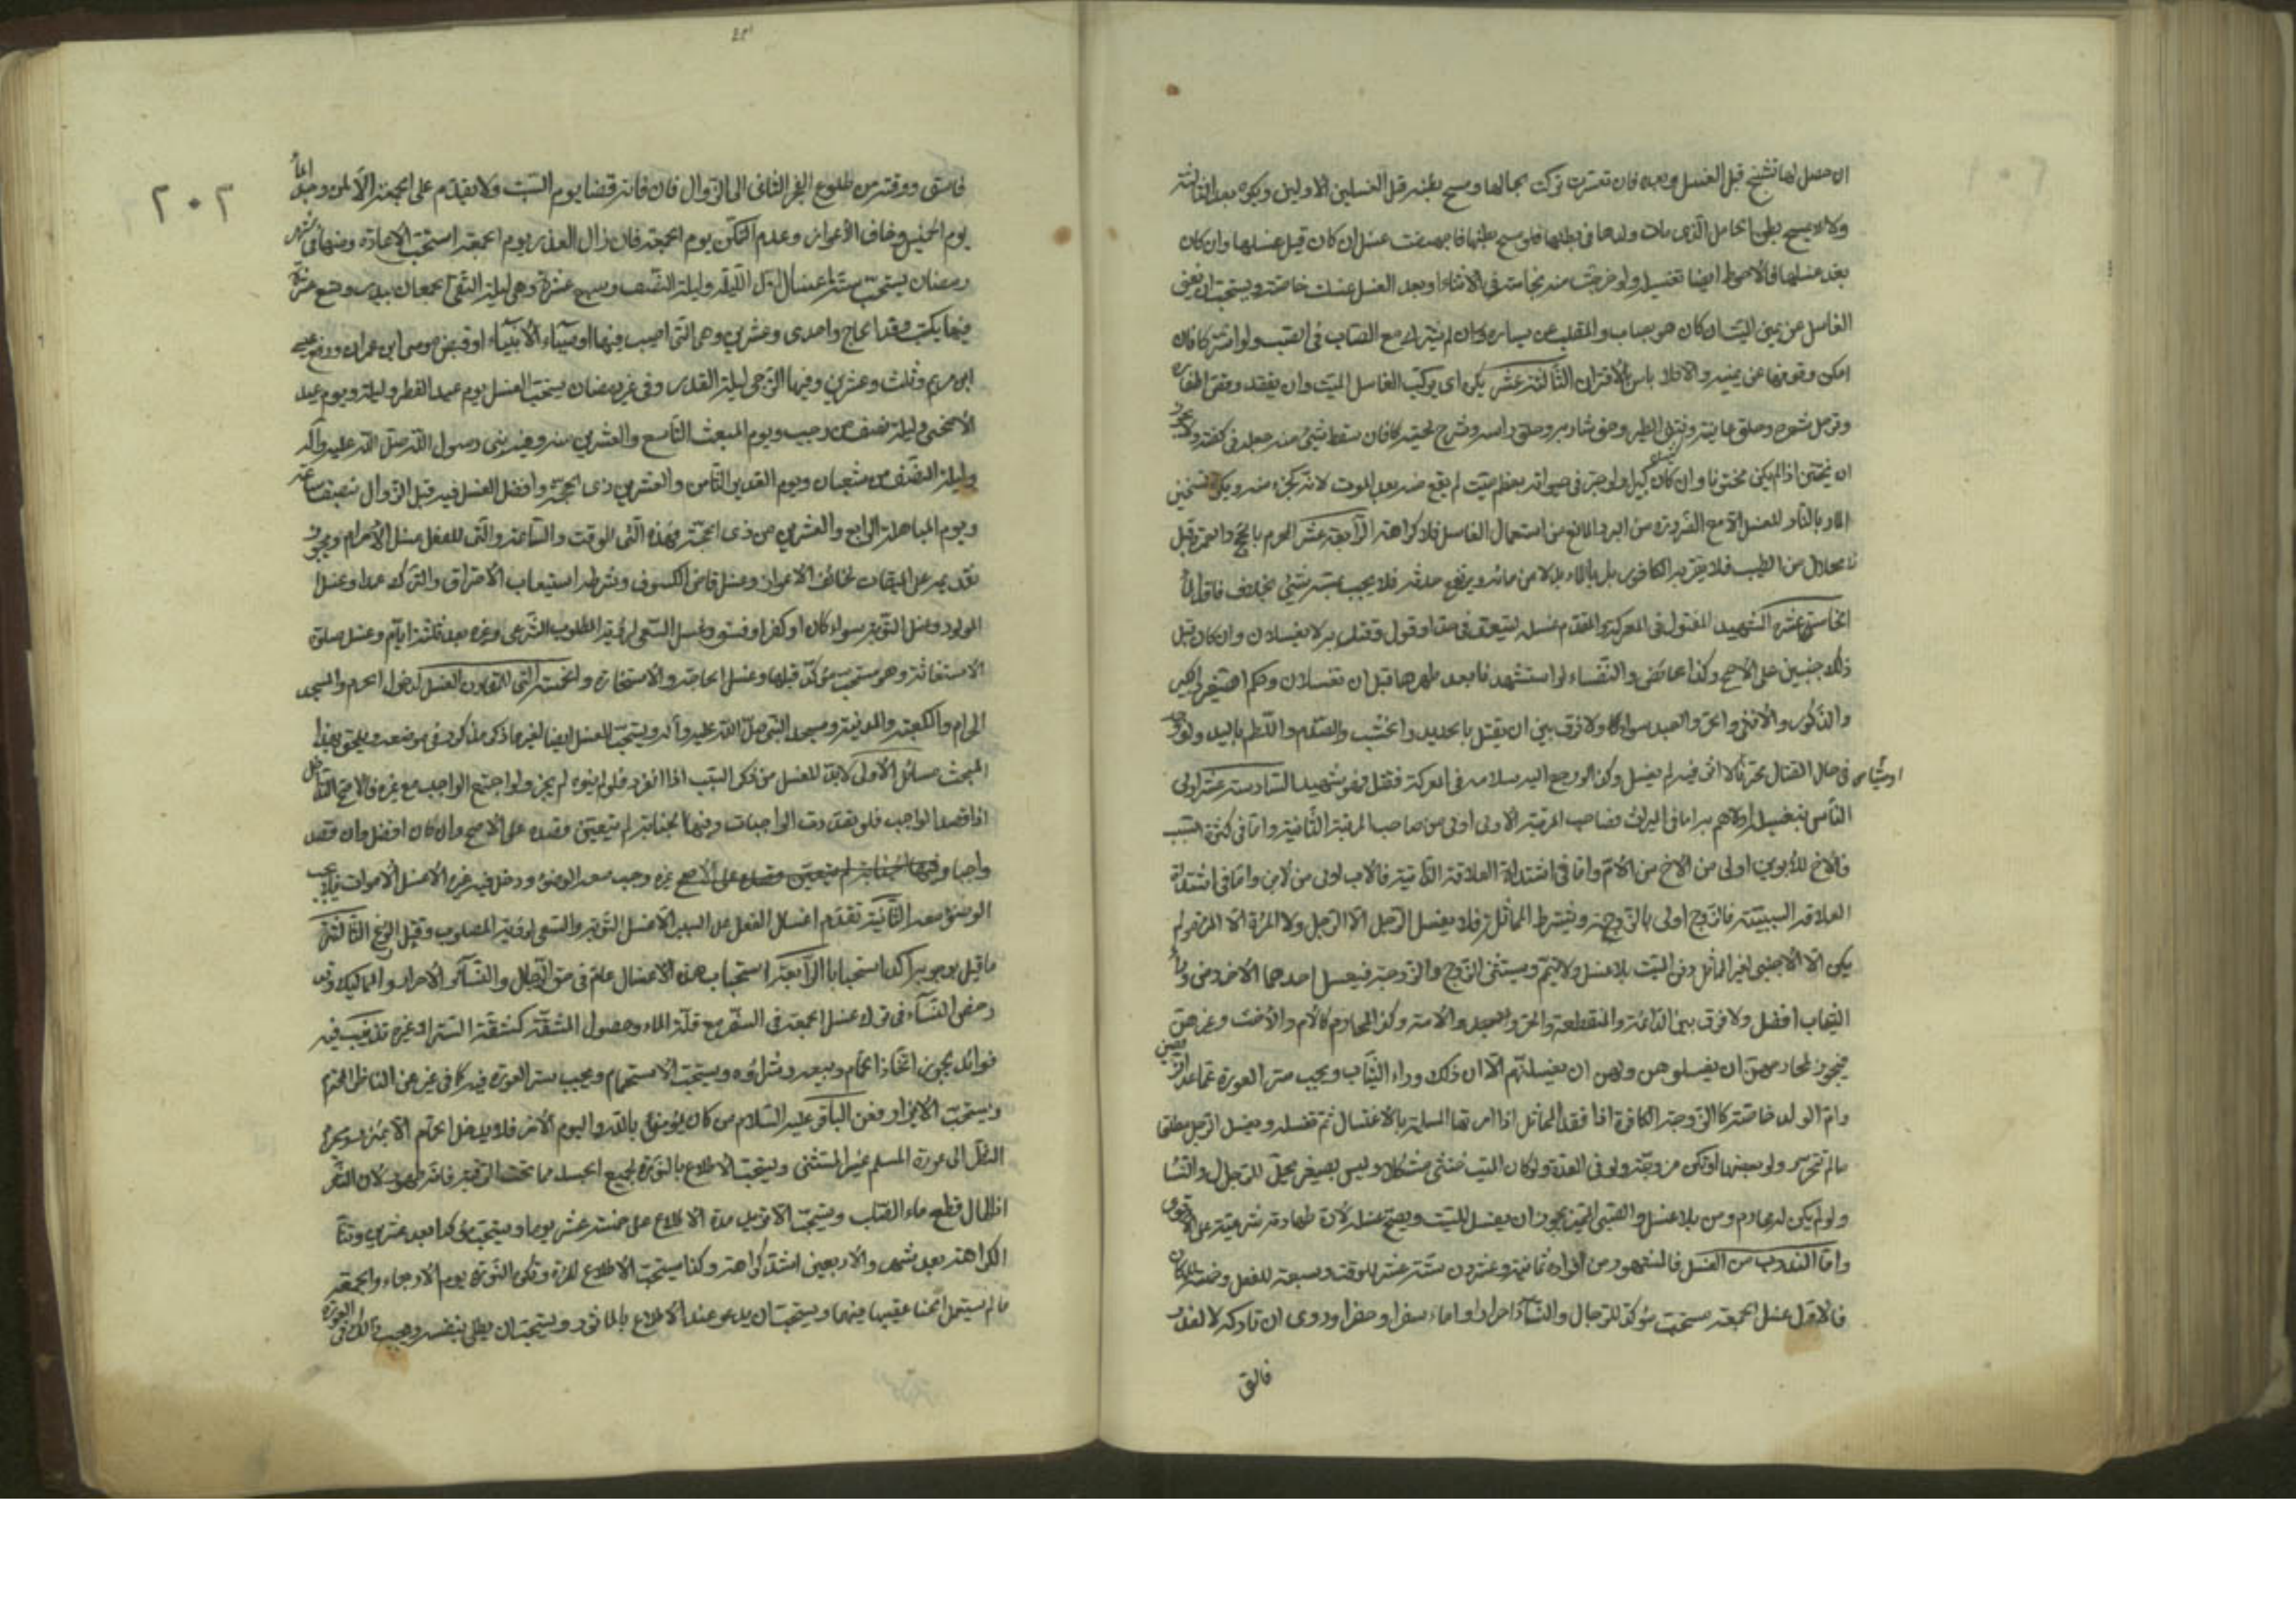 ان حصل لها تشنج قبل الغسل وبعده فان تعسرت تركت بحالها ومسح بطنه قبل الغسلين الاولين ويكره بعد الثالثة
ولا يمسح بطن الحامل الذي مات ولدها في بطنها فلو مسح بطنها فاجهضت غسل ان كان قبل غسلها وان كان
بعد غسلها فالاحوط ايضا تغسيله ولو خرجت منه نجاسة في الاثناء او بعد الغسل غسلت خاصة ويستحب ان يقف
الغاسل عن يمين الميت ان كان هو يصاب والمقلب عن يساره وان لم يشترك مع الصاب في
امكن وقوفها عن يمينه والا فلا باس بالاقتران الثالثة عشر يكره اي يركب الغاسل الميت وان يقعد وقص اظفاره
وترجل شعره وحلق عانته ونتف ابطه وحف شاربه وحلق راسه وتسريح لحيته كا فان سقط شيئ منه جعله في كفنه
ان يختتن اذا لم يكن مختونا وان كان كبيرا ولو جبر في حيواته بعظم ميت لم يقع منه بعد الموت لانه كجزء منه ويكره تسخين
الماء بالنار للغسل الا مع الضرورة من البرد المانع من استعمال الغاسل فلا كراهة الرابعة عشر المحرم بالحج والعمرة قبل
الاحلال من الطيب فلا يقربه الكافور بل بالماء بدلا من مائه ويرفع حدثه فلا يجب بمسه شيئ بخلاف فاقد الماء
الخامسة عشر الشهيد المقتول في المعركة والمقدم غسله ليقتل في حد او قول وقتل به لا يغسلان وان كان قبل
ذلك جنبين على الاصح وكذا الحائض والنفساء لو استشهدتا بعد طهرهما قبل ان تغتسلان وحكم الصغير والكبير
والذكور والانثى والحر والعبد سواء كا ولا فرق بين ان يقتل بالحديد والخشب والصدم واللطم باليد ولو وجد
في حال القتال محترقا لا اثر فيه لم يغسل وكذا لو رجع اليه سلاحه في المعركة فقتل فهو شهيد السادسة عشر اولى
الناس بتغسيله اولاهم به اما في الميراث فصاحب المرتبة الاولى اولى من صاحب المرتبة الثانية واما في كثرة السبب
فالاخ للابوين اولى من الاخ من الام واما في اشتداد العلاقة الذاتية فالاب اولى من الابن واما في اشتداد
العلاقة السببية فالزوج اولى بالزوجة ويشترط المماثلة فلا يغسل الرجل الا الرجل ولا المرأة الا المرأة ولو لم
يكن الا الاجنبي لغير المماثل دفن الميت بلا غسل ولا تيمم ويستثنى الزوج والزوجة فيغسل احدهما الاخر ومن وراء
الثياب افضل ولا فرق بين الدائمة والمنقطعة والحر والعبد والامة وكذا المحارم كالام والاخت وغيرهن
فيجوز لمحارمهن ان يغسلوهن ولهن ان يغسلنهم الا ان ذلك وراء الثياب ويجب ستر العورة عما عدا الزوجين
وام الولد خاصة كالزوجة الكافرة اذا فقد المماثل اذا امرتها المسلمة بالاغتسال ثم تغسله ويغسل الرجل مطلقا
ما لم تتحرر ولو بعضها لو تكن مزوجة ولو في العدة ولو كان الميت خنثى مشكلا وليس بصغير يحل للرجال والنساء
ولو لم يكن له محارم دفن بلا غسل والصبي المميز يجوز ان يغسل الميت ويصح غسله لان طهارته شرعية على الاقوى
واما المندوب من الغسل فالمشهور من افراده ثمانية وعشرون ستة عشر للوقت وسبعة للفعل وخمسة للمكان
فالاول غسل الجمعة مستحب مؤكد للرجال والنساء احرارا واماء سفرا وحضرا وروى ان تاركه لا لعذر
فالق
٢٠٢
فاسق ووقته من طلوع الفجر الثاني الى الزوال فان فاته قضا يوم السبت ولا يقدم على الجمعة الا لمن وجد الماء
يوم الخميس وخاف الاعواز وعدم التمكن يوم الجمعة فان زال العذر يوم الجمعة استحب الاعادة ومنها في شهر
رمضان يستحب ستة اغسال اول الليلة وليلة النصف وسبع عشرة وهي ليلة التقى الجمعان ببدر وتسع عشرة
فيها يكتب وفد الحاج واحدى وعشرين وهي التي اصيب فيها اوصياء الانبياء او قبض موسى ابن عمران ورفع عيسى
ابن مريم وثلث وعشرين وفيها الترجى ليلة القدر وفي غير رمضان يستحب الغسل يوم عيد الفطر وليلته ويوم عيد
الاضحى وليلة نصف من رجب ويوم المبعث التاسع والعشرين منه وفيه نبى رسول الله صلى الله عليه واله
وليلة النصف من شعبان ويوم الغدير الثامن والعشر من ذي الحجة وافضل الغسل فيه قبل الزوال بنصف ساعة
ويوم المباهلة الرابع والعشرين من ذي الحجة فهذه التي للوقت والساعة والتي للفعل غسل الاحرام ويجوز
تقديمه على الميقات لخائف الاعواز وغسل قاضي الكسوف وشرطه استيعاب الاحتراق والترك عمدا وغسل
المولود وغسل التوبة سواء كان او كفر او فسق وغسل السعي لرؤية المصلوب الشرعي وغيره بعد ثلثة ايام وغسل صلوة
الاستغاثة وهو مستحب مؤكد قبلها وغسل الحاجة والاستخارة والخمسة التي للمكان الغسل لدخول الحرم والمسجد
الحرام والكعبة والمدينة ومسجد النبي صلى الله عليه واله ويستحب الغسل ايضا لغير ما ذكر مذكور في موضعه ويلحق بهذا
المبحث مسائل الاولى لابد للغسل من ذكر السبب اذا انفرد فلو لم ينوه لم يجز ولو اجتمع الواجب مع غيره فالاصح التداخل
اذا قصد الواجب فلو تعددت الواجبات وفيها الجنابة لم يتعين قصده على الاصح وان كان افضل وان قصد
واجبا وفيها الجنابة لم يتعين قصده على الاصح غيره وجب معه الوضوء ودخل فيه غيره الا غسل الاموات فلا يجب
الوضوء معه الثانية تقدم اغسال الفعل على السبب الا غسل التوبة والسعي لرؤية المصلوب وقتل الوزغ الثالثة
ما قيل بوجوبه اكد استحبابا الرابعة استحباب هذه الاغسال عام في حق الرجال والنساء والاحرار والمماليك وقد
رخص النساء في ترك غسل الجمعة في السفر مع قلة الماء وحصول المشقة كمشقة الستر او غيره
فوائد يجوز اتخاذ الحمام وبيعه وشراؤه ويستحب الاستحمام ويجب ستر العورة فيه كا في غيره عن الناظر المحترم
ويستحب الاتزار فعن الباقر عليه السلام من كان يؤمن بالله واليوم الاخر فلا يدخل الحمام الا بمئزر ويحرم
النظر الى عورة المسلم غير المستثنى ويستحب الاطلاء بالنورة لجميع الجسد مما تحت الرقبة فانه طهور لان الشعر
اذا طال قطع ماء الصلب ويستحب الا تزيد مدة الاطلاء على خمسة عشر يوما ويستحب مؤكدا بعد عشرين وتتأكد
الكراهة بعد شهر والاربعين اشد كراهة وكذا يستحب الاطلاء للمرأة وتكره النورة يوم الاربعاء والجمعة
ما لم يستعمل الحنا عقيبها فيهما ويستحب ان يدعو عند الاطلاء بالماثور ويستحب ان يطلى بنفسه ويجب ذلك في العورة